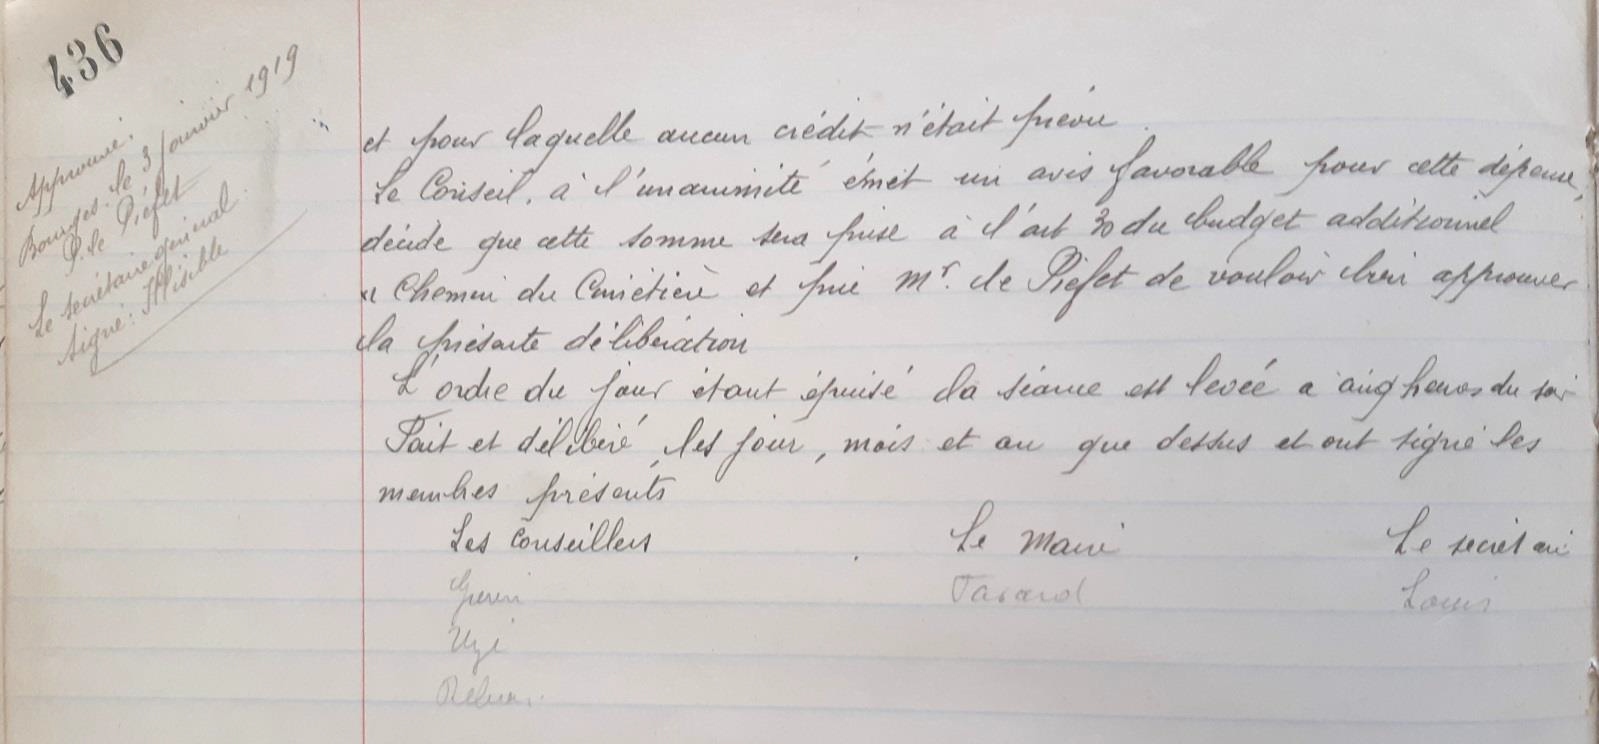 436
Approuvé.
Bourges. le 3 janvier 1919
P. le Préfet
Le secrétaire général.
Signé: Illisible
et pour laquelle aucun crédit n'était prévu.
Le Conseil, à l'unanimité émet un avis favorable pour cette dépense,
décide que cette somme sera prise à l'art 30 du budget additionnel
"Chemin du Cimetière et prie Mr. le Préfet de vouloir bien approuver
la présente délibération
L'ordre du jour étant épuisé la séance est levée a cinq heures du soir
Fait et délibéré, les jour, mois et an que dessus et ont signé les
membres présents
Les Conseillers
Le Maire
Le secrétaire
Tavard
Louis